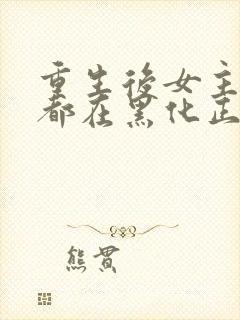 重生後女主
都在黑化正
熊貫